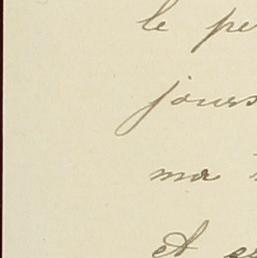 le pe
jours
ma
et